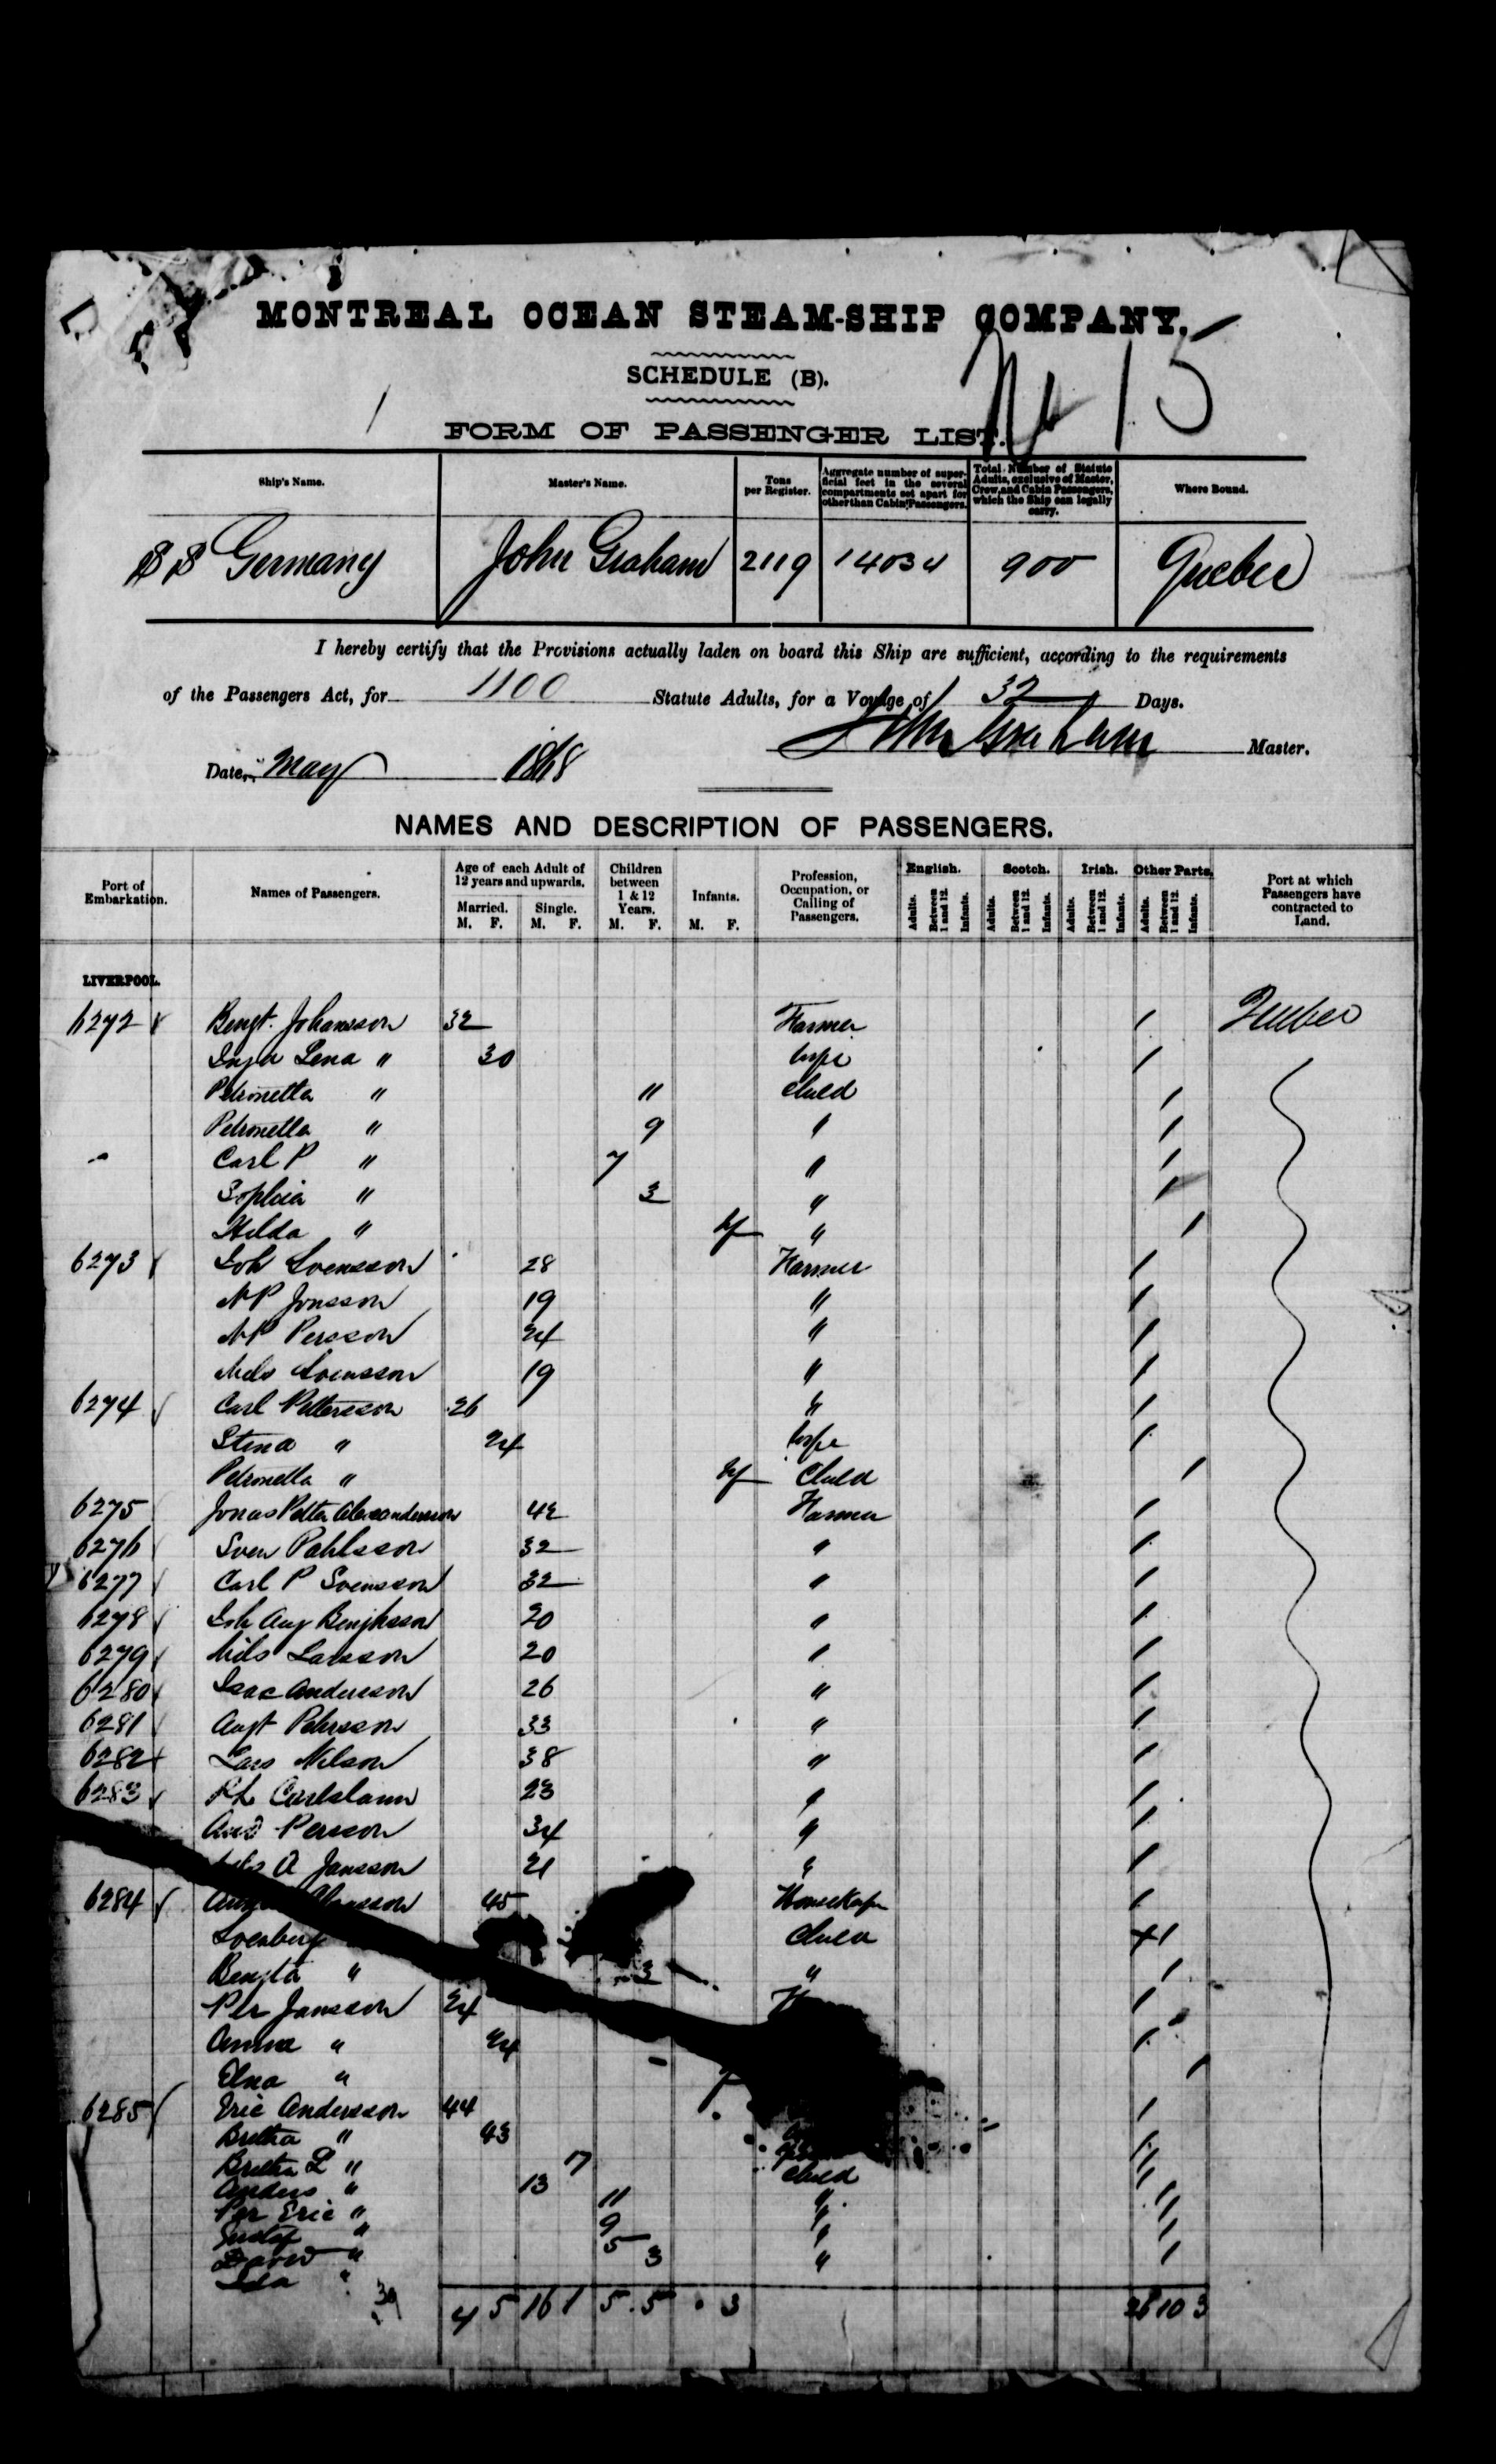 MONTREAL OCEAN STEAM-SHIP COMPANY.
No 15
SCHEDULE (B).
FORM OF PASSENGER LIST.
Ship's Name. Master's Name. Tons per Register. Aggregate number of superficial feet in the several compartments set apart for other than Cabin Passengers. Total Number of Statute Adults, exclusive of Master, Crew, and Cabin Passengers, which the Ship can legally carry. Where Bound.
SS Germany John Graham 2119 14034 900 Quebec
I hereby certify that the Provisions actually laden on board this Ship are sufficient, according to the requirements
of the Passengers Act, for 1100 Statute Adults, for a Voyage of 32 Days.
John Graham Master.
Date, May 1868
NAMES AND DESCRIPTION OF PASSENGERS.
Port of Embarkation. Names of Passengers. Age of each Adult of 12 years and upwards. Married. M. F. Single. M. F. Children between 1 & 12 Years. M. F. Infants. M. F. Profession, Occupation, or Calling of Passengers. English. Adults. Between 1 and 12. Infants. Scotch. Adults. Between 1 and 12. Infants. Irish. Adults. Between 1 and 12. Infants. Other Parts. Adults. Between 1 and 12. Infants. Port at which Passengers have contracted to Land.
LIVERPOOL.
6272 Bengt. Johansson 32 Farmer / Quebec
Inga Lena " 30 wife /
Petronella " 11 Child /
Petronella " 9 " /
Carl P " 7 " /
Sophia " 3 " /
Hilda " " /
6273 Joh Svensson 28 Farmer /
N P Jonsson 19 " /
N P Persson 24 " /
Nils Svensson 19 " /
6274 Carl Pettersson 26 " /
Stina " 24 wife /
Petronella " Child /
6275 Jonas Petter Alexandersson 42 Farmer /
6276 Sven Pahlsson 32 " /
6277 Carl P Svensson 32 " /
6278 Joh Aug Bengtsson 20 " /
6279 Nils Larsson 20 " /
6280 Isac Andersson 26 " /
6281 Augt Pehrsson 33 " /
6282 Lars Nilson 38 " /
6283 23 " /
And Persson 34 " /
A Jansson 21 " /
6284 45 Housekeeper /
Child /
Bengta " 3 " /
Per Jansson 24 /
Anna " 24 /
Elna " /
6285 Eric Andersson 44 /
Bretha " 43 /
Bretha L " 17 /
Anders " 13 Child /
Per Eric " 11 " /
Gustaf " 9 " /
David " 5 " /
Ida " 3 " /
39 4 5 16 1 5 5 . 3 26 10 3